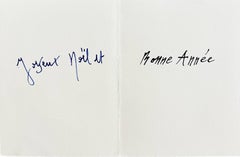 Joyeux Noël et
Bonne Année